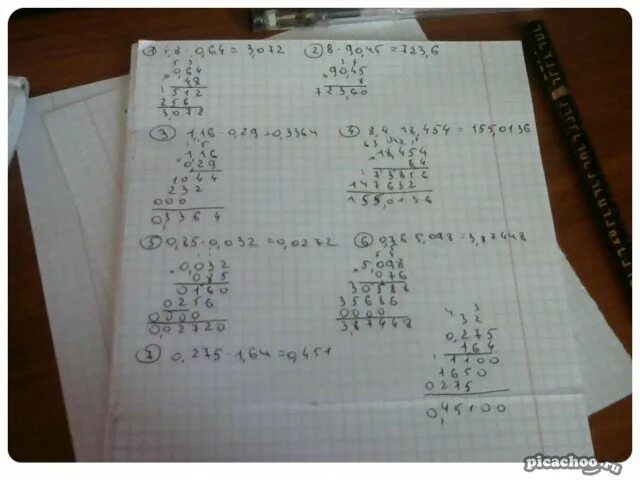 1 4,8 · 0,64 = 3,072
0,64
48
512
256
3,072
2 8 · 90,45 = 723,6
90,45
8
723,60
3 1,16 · 0,29 = 0,3364
1,16
0,29
1044
232
000
0,3364
4 8,4 · 18,454 = 155,0136
18,454
84
73816
147632
155,0136
5 0,85 · 0,032 = 0,0272
0,032
0,85
0160
0256
0000
0,02720
6 0,76 · 5,098 = 3,87448
5,098
076
30588
35686
0000
3,87448
7 0,275 · 1,64 = 0,451
32
0,275
164
1100
1650
0275
0,45100
picachoo.ru